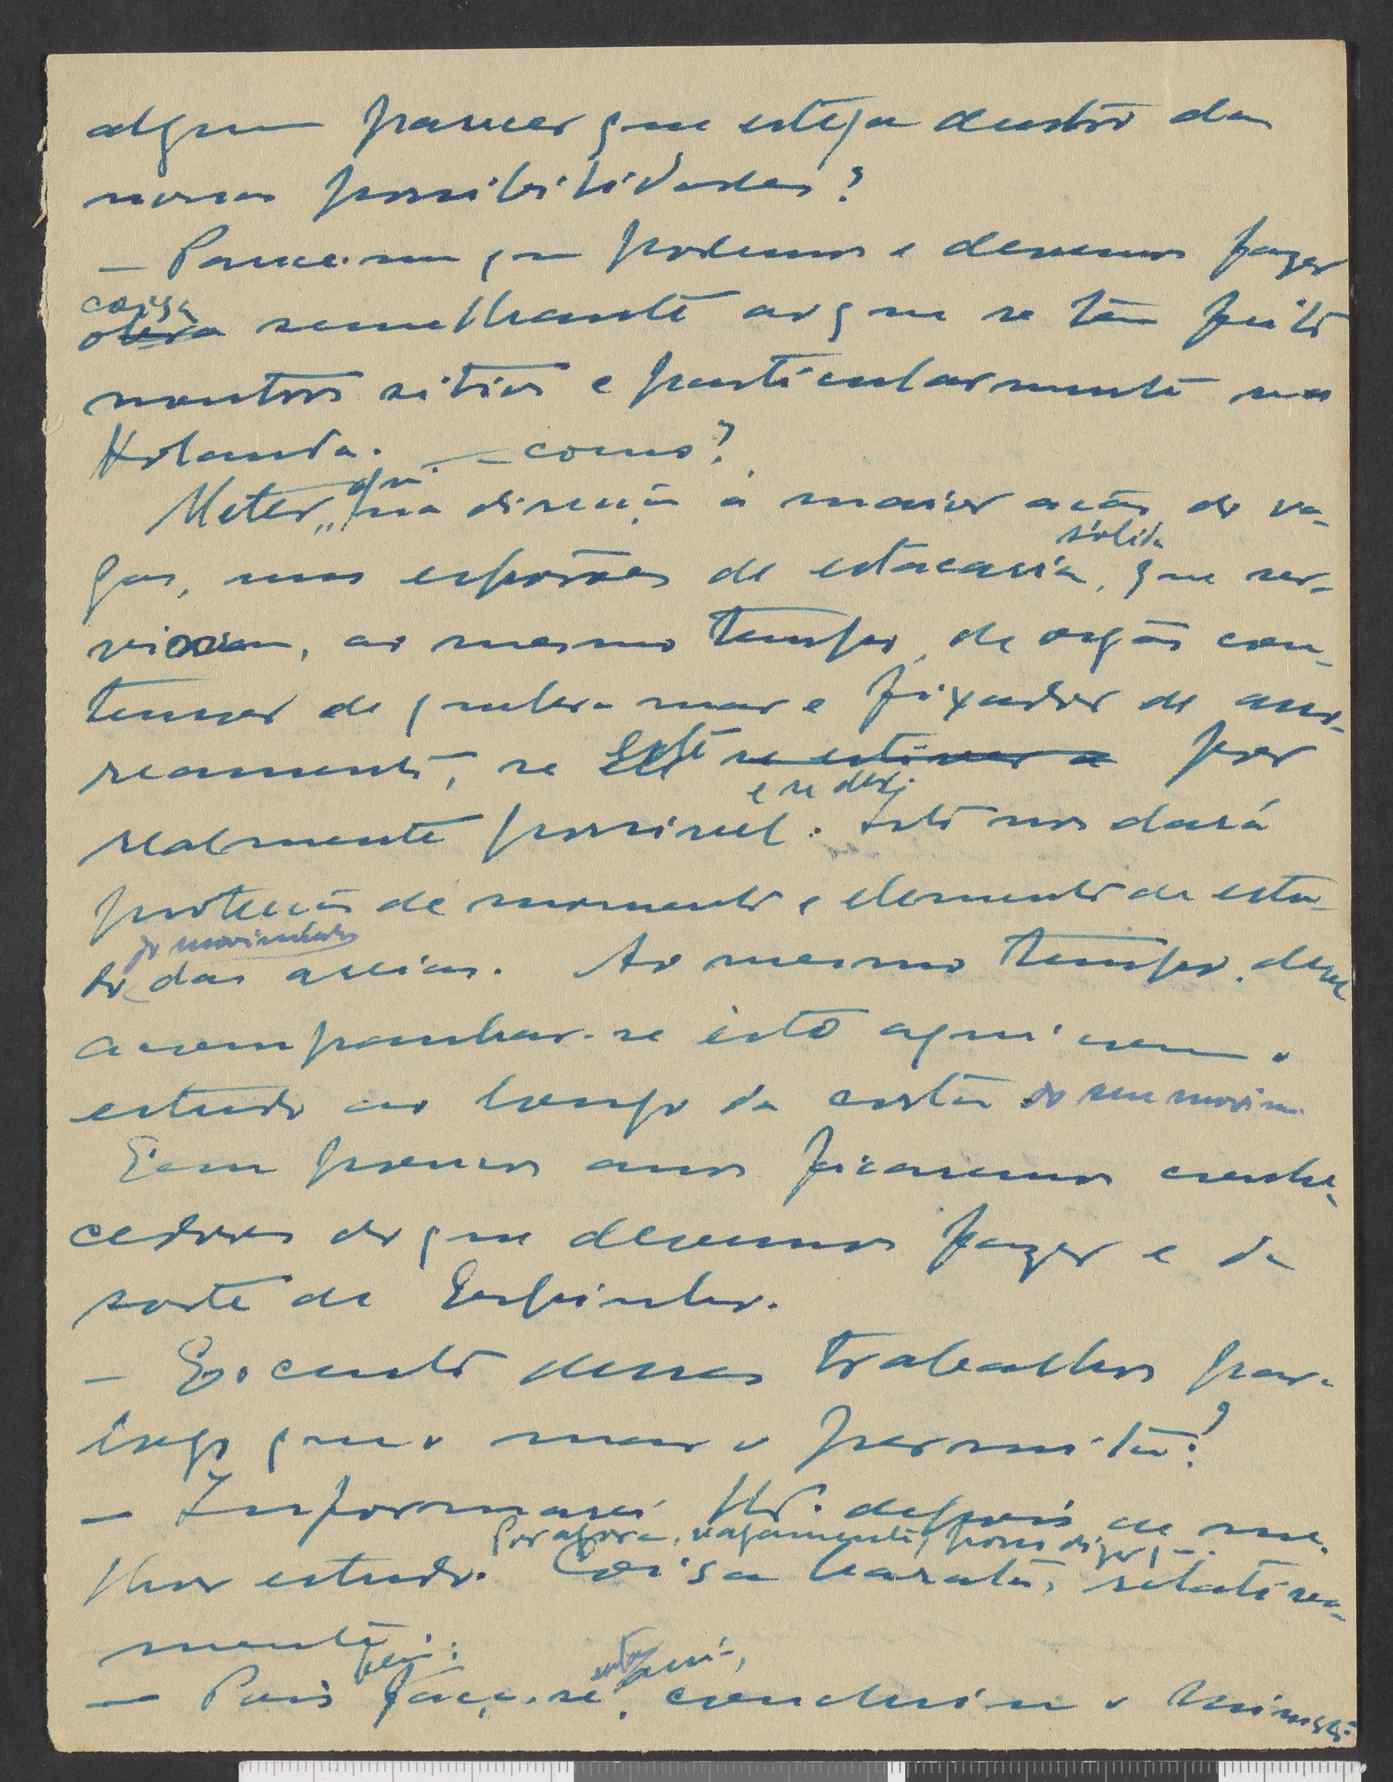 algum parecer que esteja dentro das
nossas possibilidades?
— Parece-me que podemos e devemos fazer
coisa
obra semelhante ao que se tem feito
noutros sitios e particularmente na
Holanda. — como?
Meter, aqui na direcção á maior acção de va-
sólida
gas, uns esporões de estacaria, que ser-
viriam, ao mesmo tempo, de orgão con-
tensor de quebra-mar e fixador de asso-
reamento, se este se estiver a for
e se dese
realmente possivel. Isto nos dará
protecção de momento e elemento de estu-
do movimento
do das areias. Ao mesmo tempo, deve
acompanhar-se isto aqui com o
estudo ao longo da costa do seu movim.
E em poucos anos ficaremos conhe-
cedores do que devemos fazer e da
sorte de Espinho.
— E o custo desses trabalhos para
logo que o mar o permita?
— Informarei depois de me-
Por agora, vagamente, posso dizer q
lhor estudo. Coisa barata, relativa-
mente.
— Pois faça-se, concluiu o Ministro